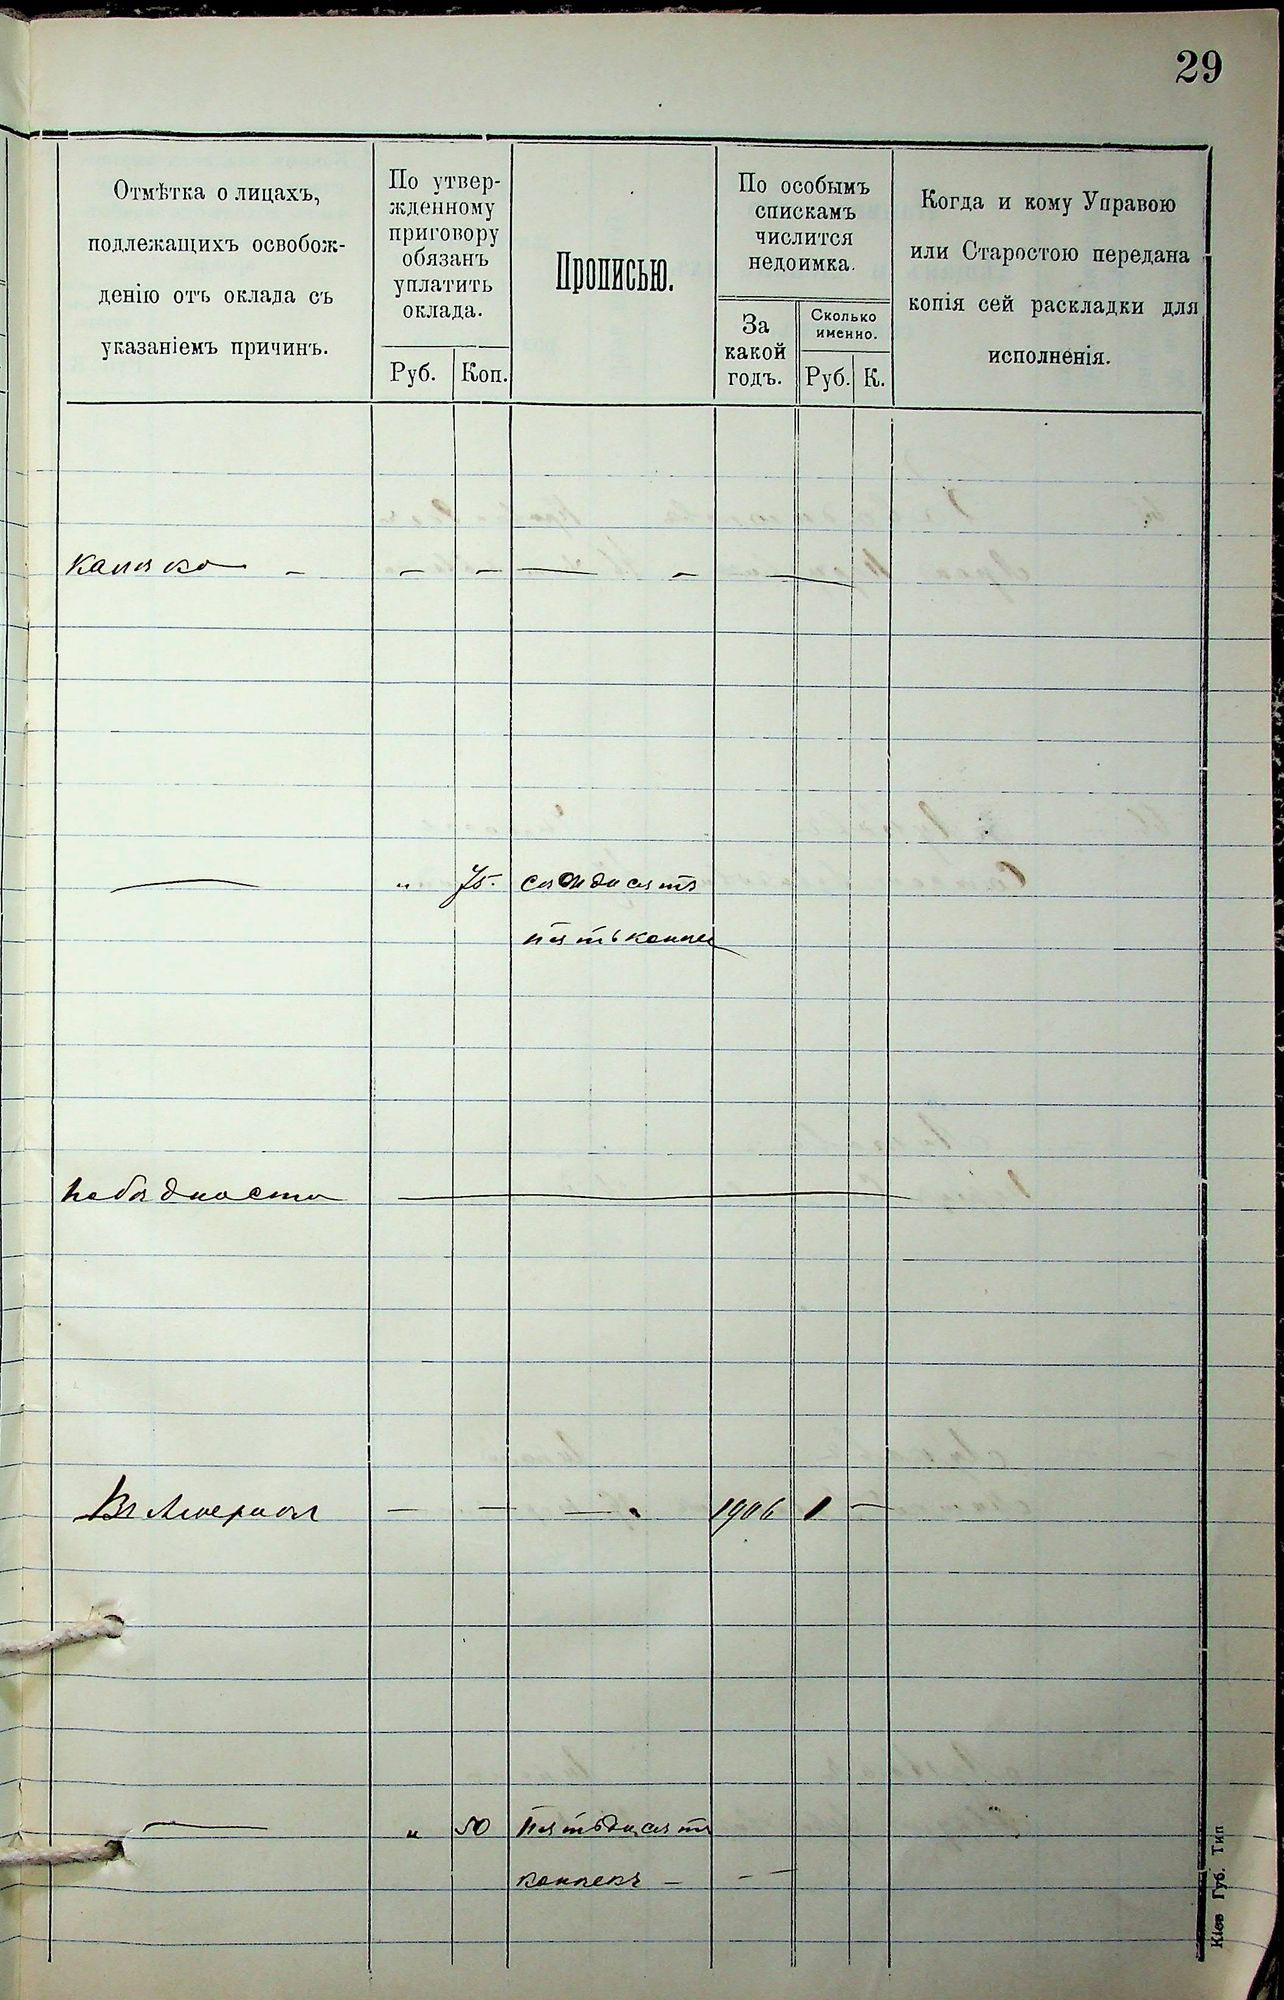 29
Отмѣтка о лицахъ,
подлежащихъ освобож-
денію отъ оклада съ
указаніемъ причинъ.
По утвер-
жденному
приговору
обязанъ
уплатить
оклада.
Руб. Коп.
Прописью.
По особымъ
спискамъ
числится
недоимка.
За
какой
годъ.
Сколько
именно.
Руб. К.
Когда и кому Управою
или Старостою передана
копія сей раскладки для
исполненія.
— — — — — —
— " 75. семдесятъ
пять копѣе
по бѣдности —
Въ Америкѣ — — — 1906 1 —
— " 50 пятьдесятъ
копѣекъ — —
Кіев Губ. Тип